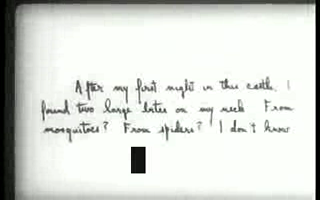 After my first night in this castle, I
found two large bites on my neck From
mosquitoes? From spiders? I don't know